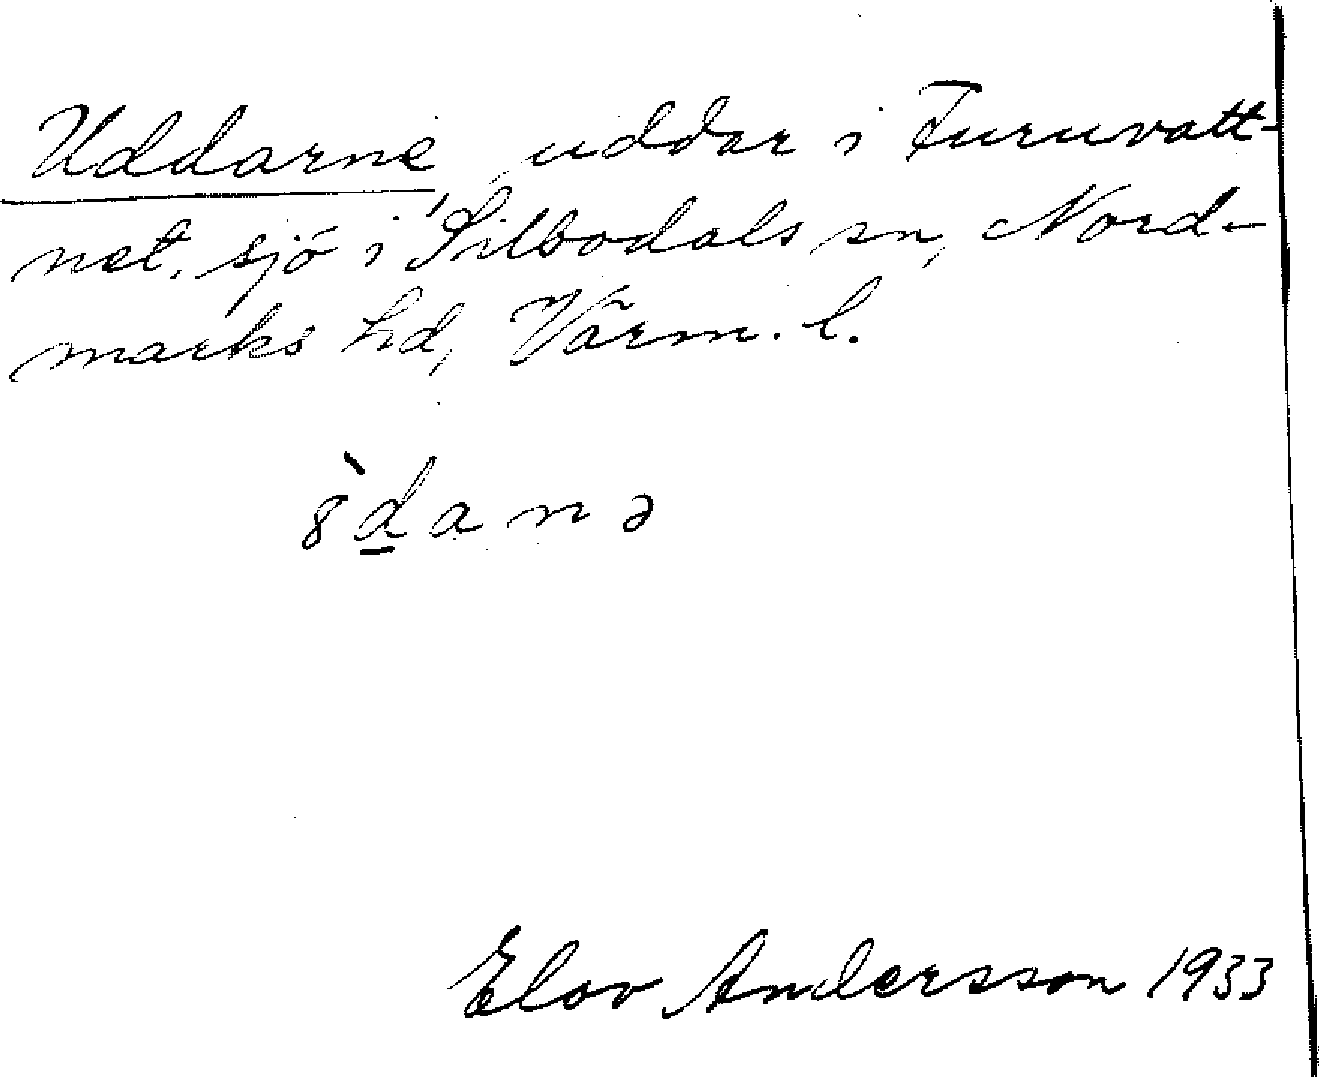 Uddarne, uddar i Furuvatt-
net, sjö i Silbodals sn, Nord-
marks hd, Värm. l.
8̀d̲anə
Elov Andersson 1933